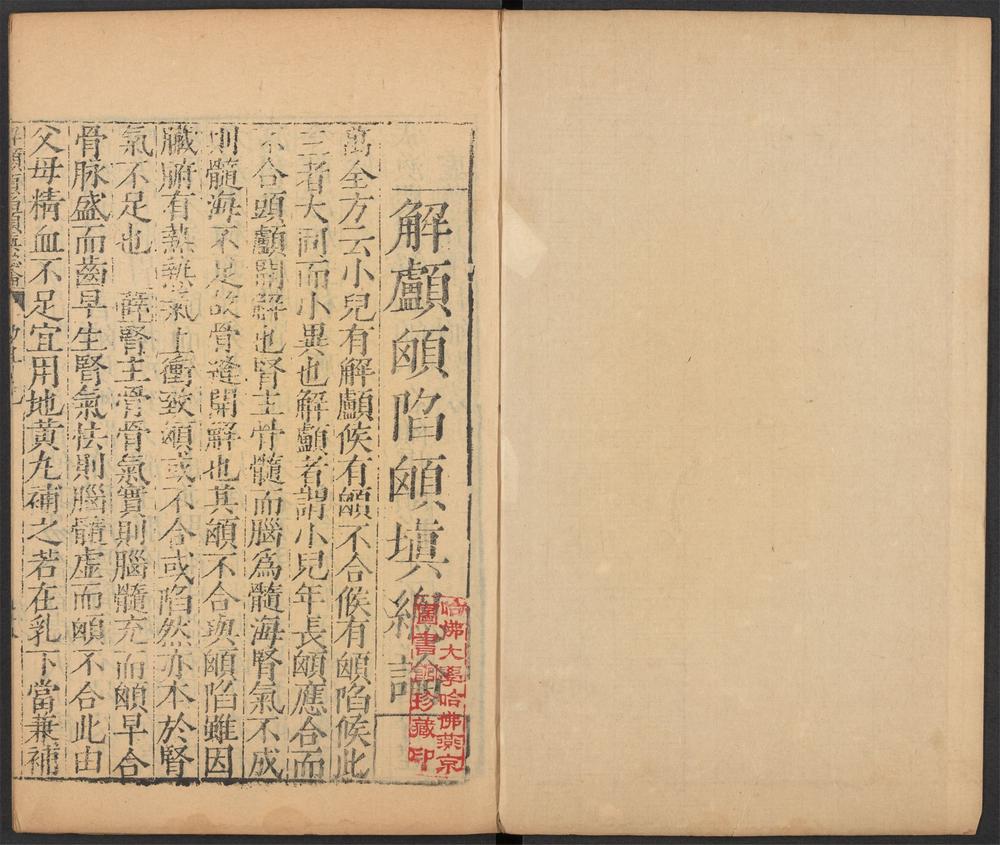 解顱𩒐陷𩒐塡總論
萬全方云小兒有解顱候有𩒐不合候有𩒐陷候此
三者大同而小異也解顱者謂小兒年長𩒐應合而
不合頭顱開解也腎主骨髓而腦爲髓海腎氣不成
則髓海不足故骨縫開解也其𩒐不合與𩒐陷雖因
臟腑有熱熱氣上衝致𩒐或不合或陷然亦本於腎
氣不足也　薛腎主骨骨氣實則腦髓充而𩒐早合
骨脉盛而齒早生腎氣怯則腦髓虛而𩒐不合此由
父母精血不足宜用地黃丸補之若在乳下當兼補
哈佛大學哈佛燕京
圖書館珍藏印